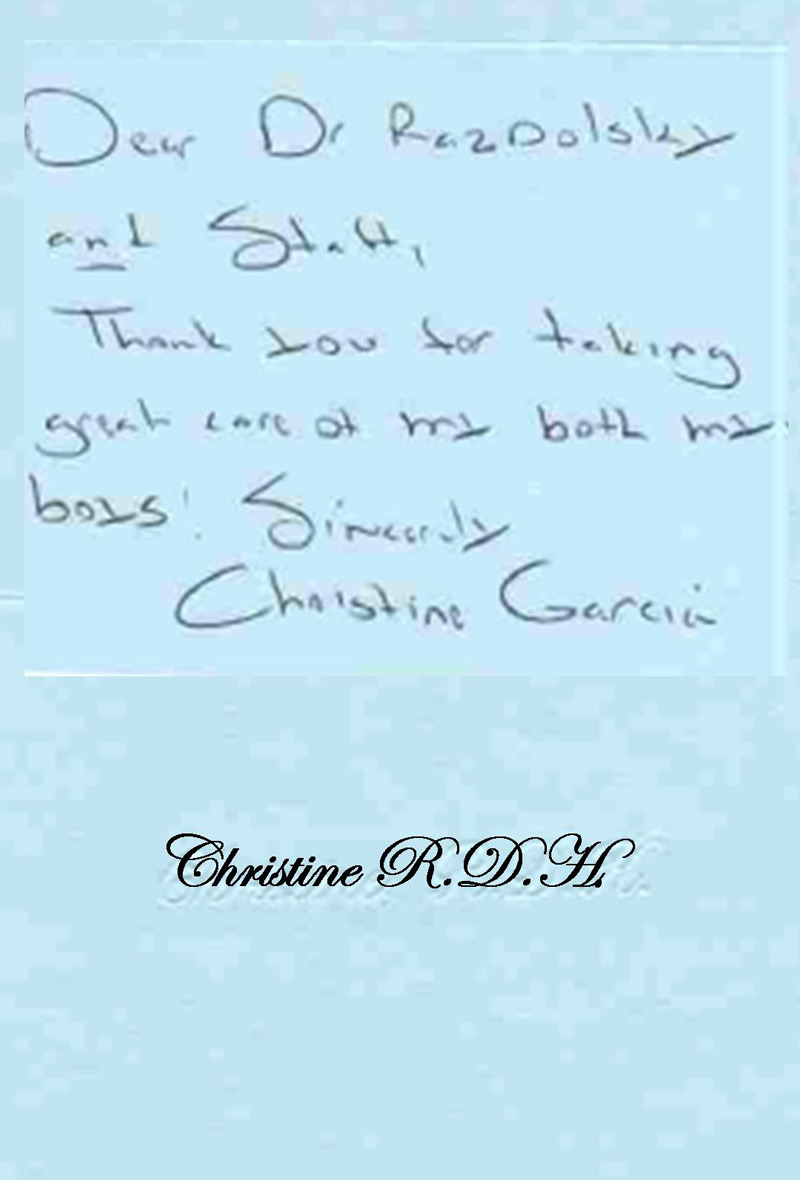 Dear Dr Razdolsky
and Staff,
Thank you for taking
great care of my both my
boys! Sincerly
Christine Garcia
Christine R.D.H.